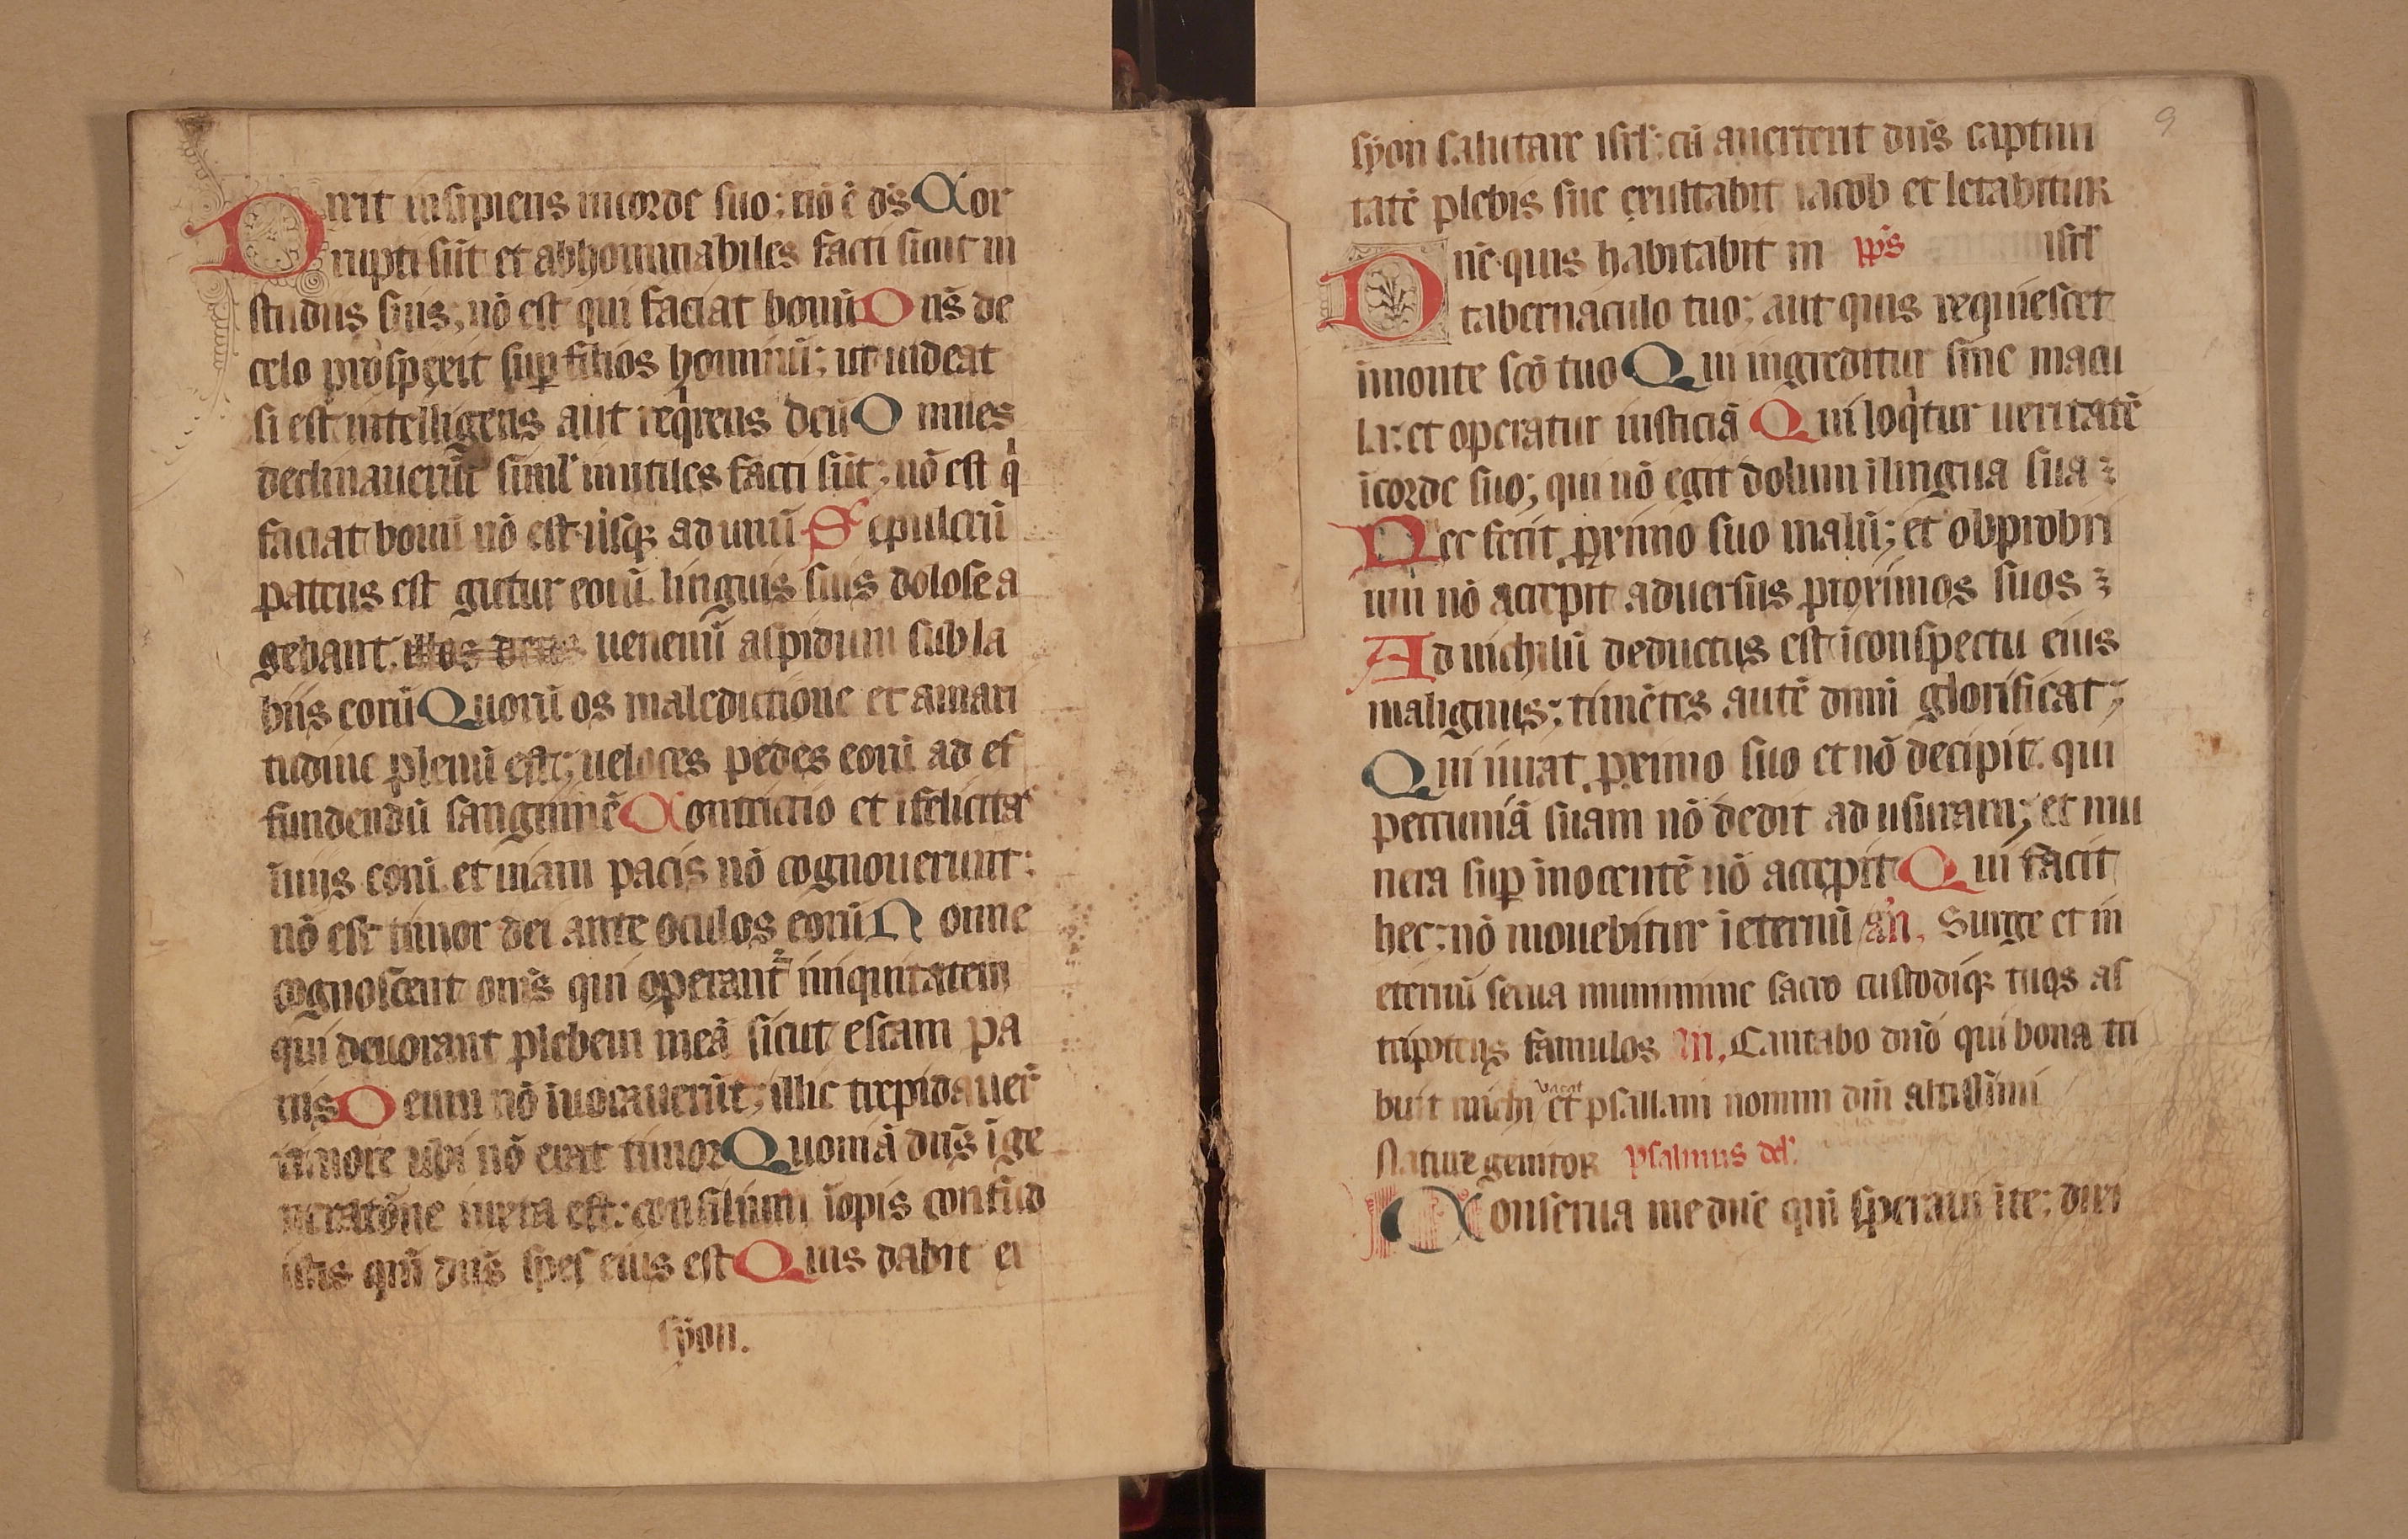 Dixit insipiens incorde suo; nō ē ds̄ Cor
rupti sūt et abhominabiles facti sunt in
studiis suis; nō est qui faciat bonū Dns̄ de
celo prospexit sup filios hominū; ut uideat
si est intelligens aut reqͥrens deū Omnes
declinauerūt siml̄ inutiles facti sūt; nō est qͥ
faciat bonū nō est usqꝫ ad unū Sepulcrū
patens est guttur eorū linguis suis dolose a
gebant. uenenū aspidum sub la
biis eorū Quorū os maledictione et amari
tudine plenū est; ueloces pedes eorū ad ef
fundendū sanguinē Contricio et ifelicitas
ī uiis eorū et uiam pacis nō cognouerunt:
nō est timor dei ante oculos eorū Nonne
cognoscent oms̄ qui operant̄ iniquitatem
qui deuorant plebem meā sicut escam pa
nis Deum nō īuocauerūt; illic trepidauer̄
timore ubi nō erat timor Quoniā dns̄ ī ge
neratōne iusta est: consilium īopis confud
istis qm̄ dns̄ spes eius est Quis dabit ex
syon.
9
syon salutare isrl̄: cū auerterit dns̄ captiui
tatē plebis sue exultabit iacob et letabitur
isrl̄
Dn̄e quis habitabit in pp̄s
tabernaculo tuo; aut quis requiescet
ī monte scō tuo Qui ingreditur sine macu
la: et operatur iusticiā Qui loqͥtur ueritatē
ī corde suo; qui nō egit dolum ī lingua sua
Nec fecit ꝓximo suo malū; et obprobri
um nō accepit aduersus proximos suos
Ad nichilū deductus est ī conspectu eius
malignus; timētes autē dnm̄ glorificat;
Qui iurat ꝓximo suo et nō decipit. qui
peccuniā suam nō dedit ad usuram; et mu
nera sup īnocentē nō accepit Qui facit
hec; nō mouebitur ī eternū an̄. Surge et in
eternū serua munimine sacro custodiqꝫ tuos as
tripotens famulos an̄. Cantabo dnō qui bona tri
buit michi et psallam nomini dni altissimi
vacat
Nature genitor psalmus dd̄.
Conserua me dn̄e qm̄ speraui ī te; dixi